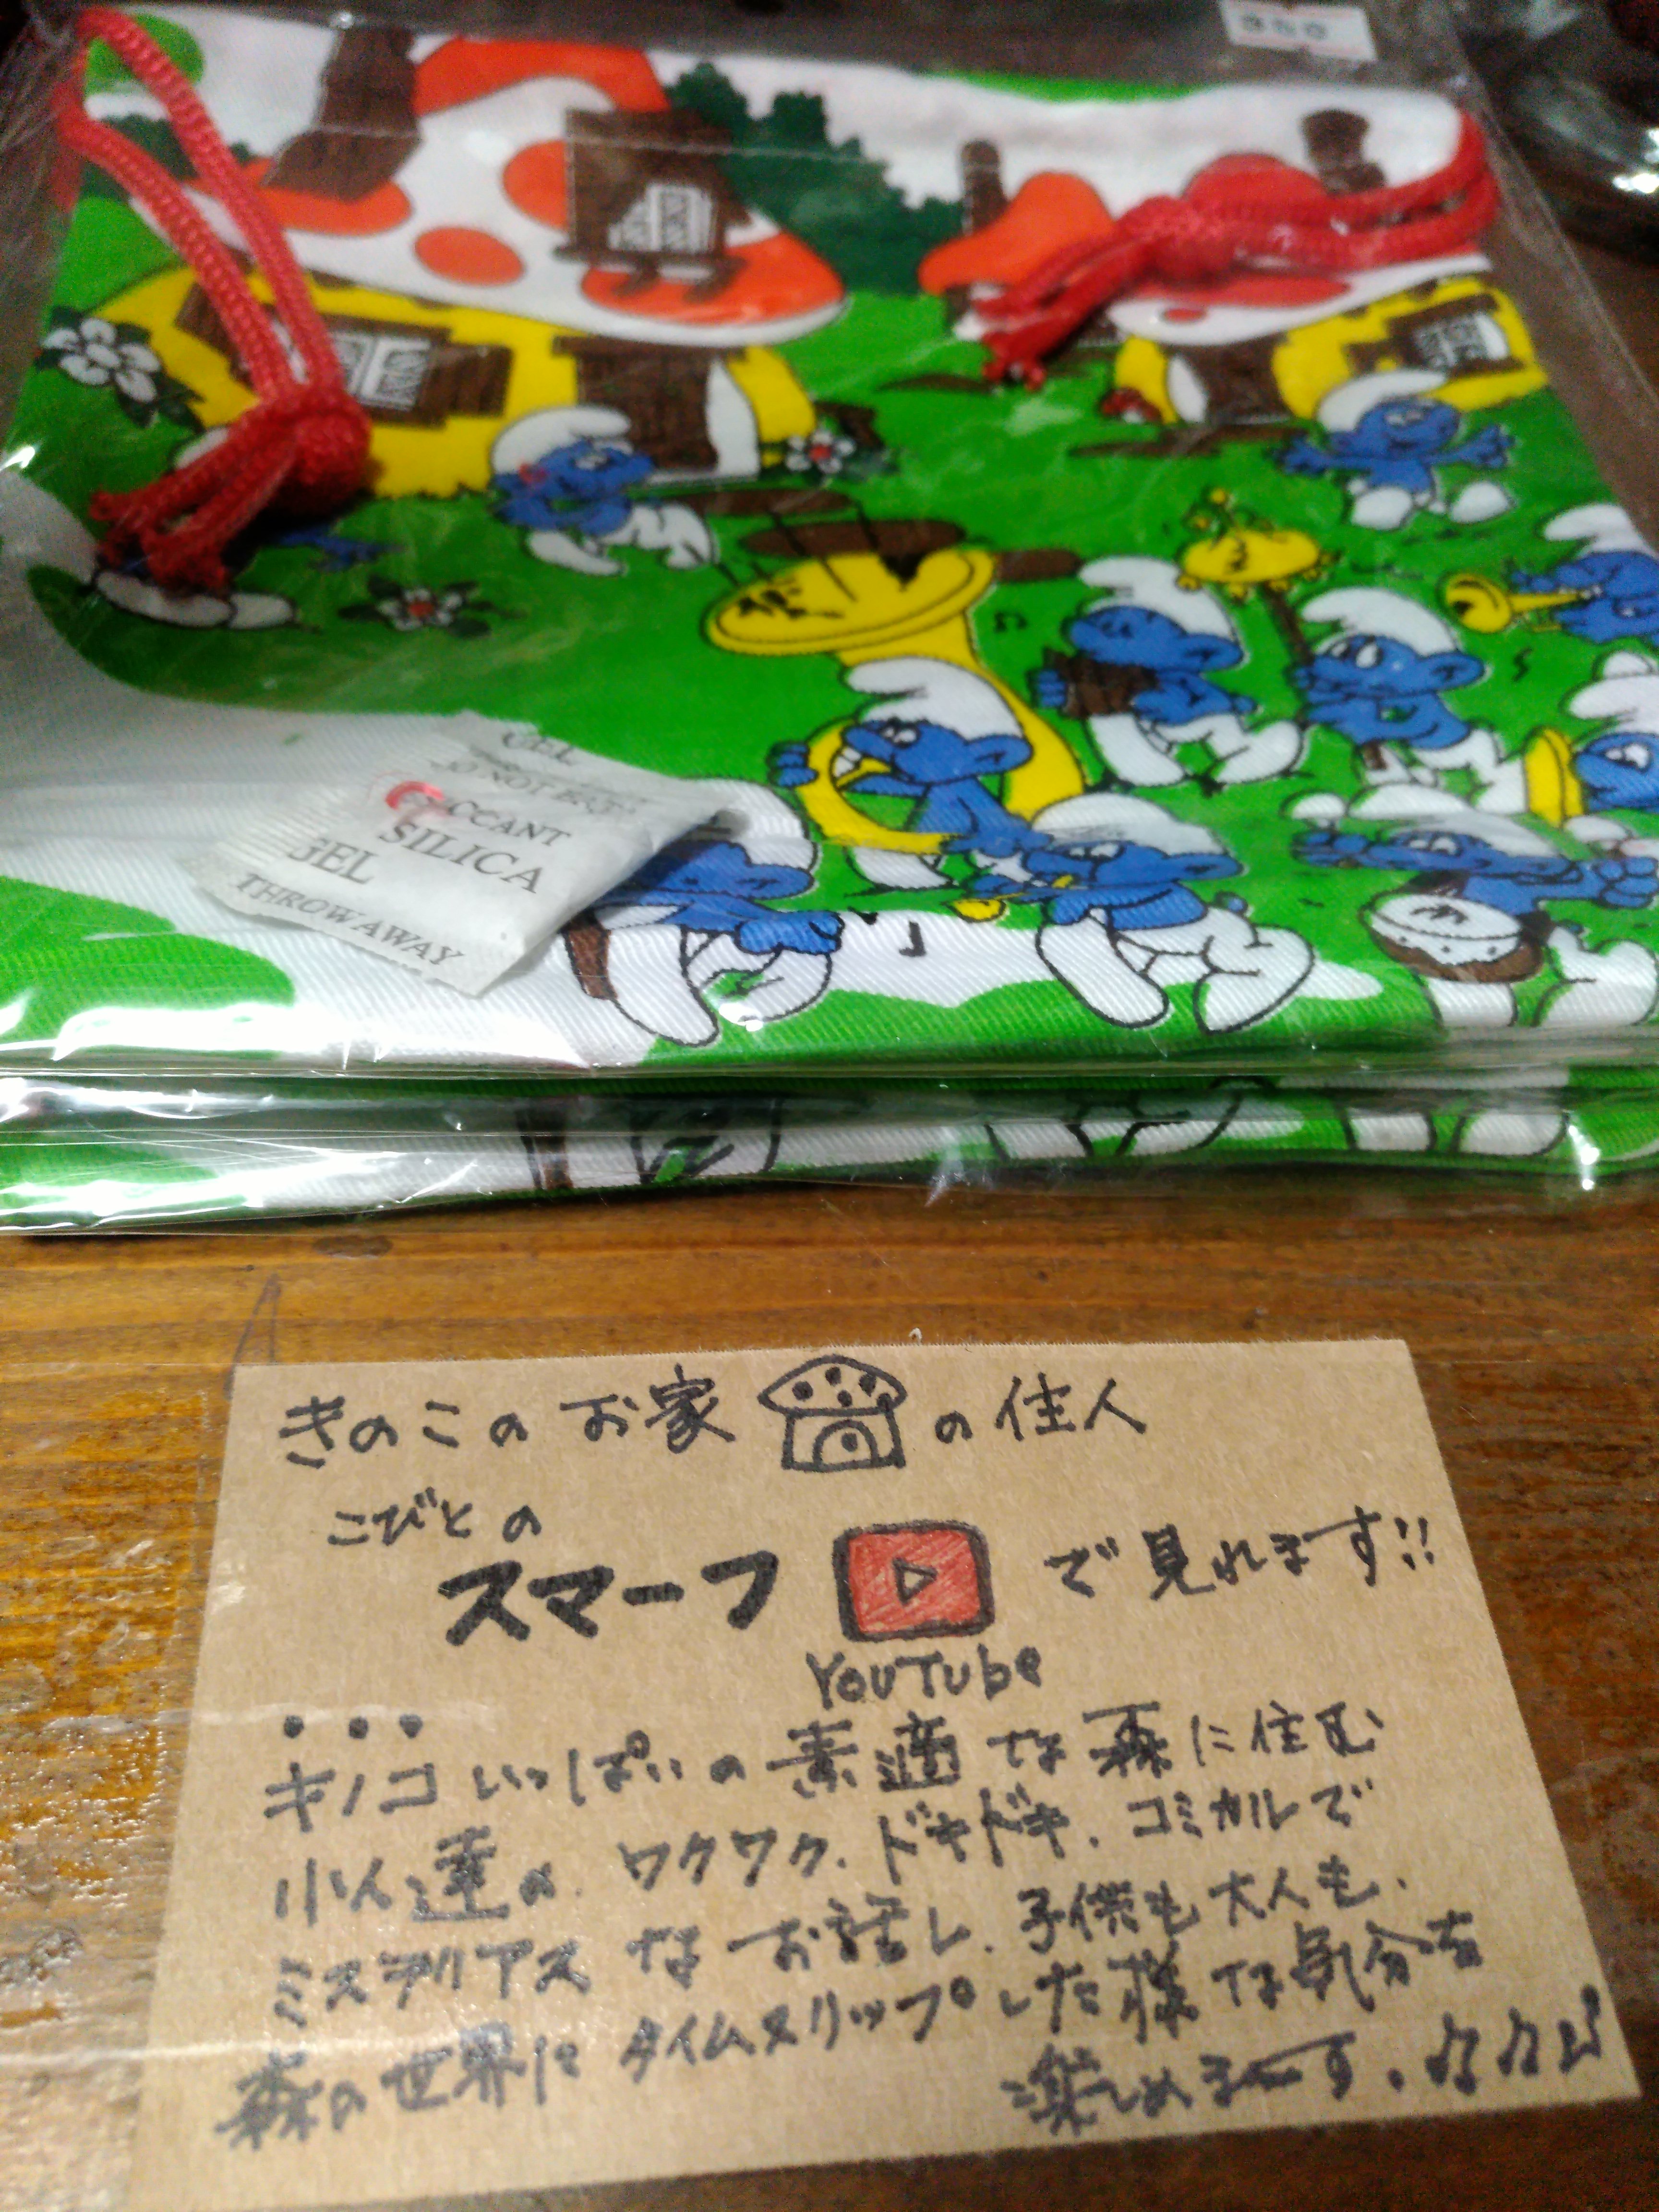 GEL
DO NOT EAT
DECCANT
SILICA
GEL
THROW AWAY
きのこのお家の住人
こびとの
スマーフ で見れます!!
YouTube
キノコいっぱいの素適な森に住む
小人達の、ワクワク、ドキドキ、コミカルで
ミステリアスなお話し、子供も大人も、
森の世界にタイムスリップした様な気分を
楽しめまーす。♪♪♪